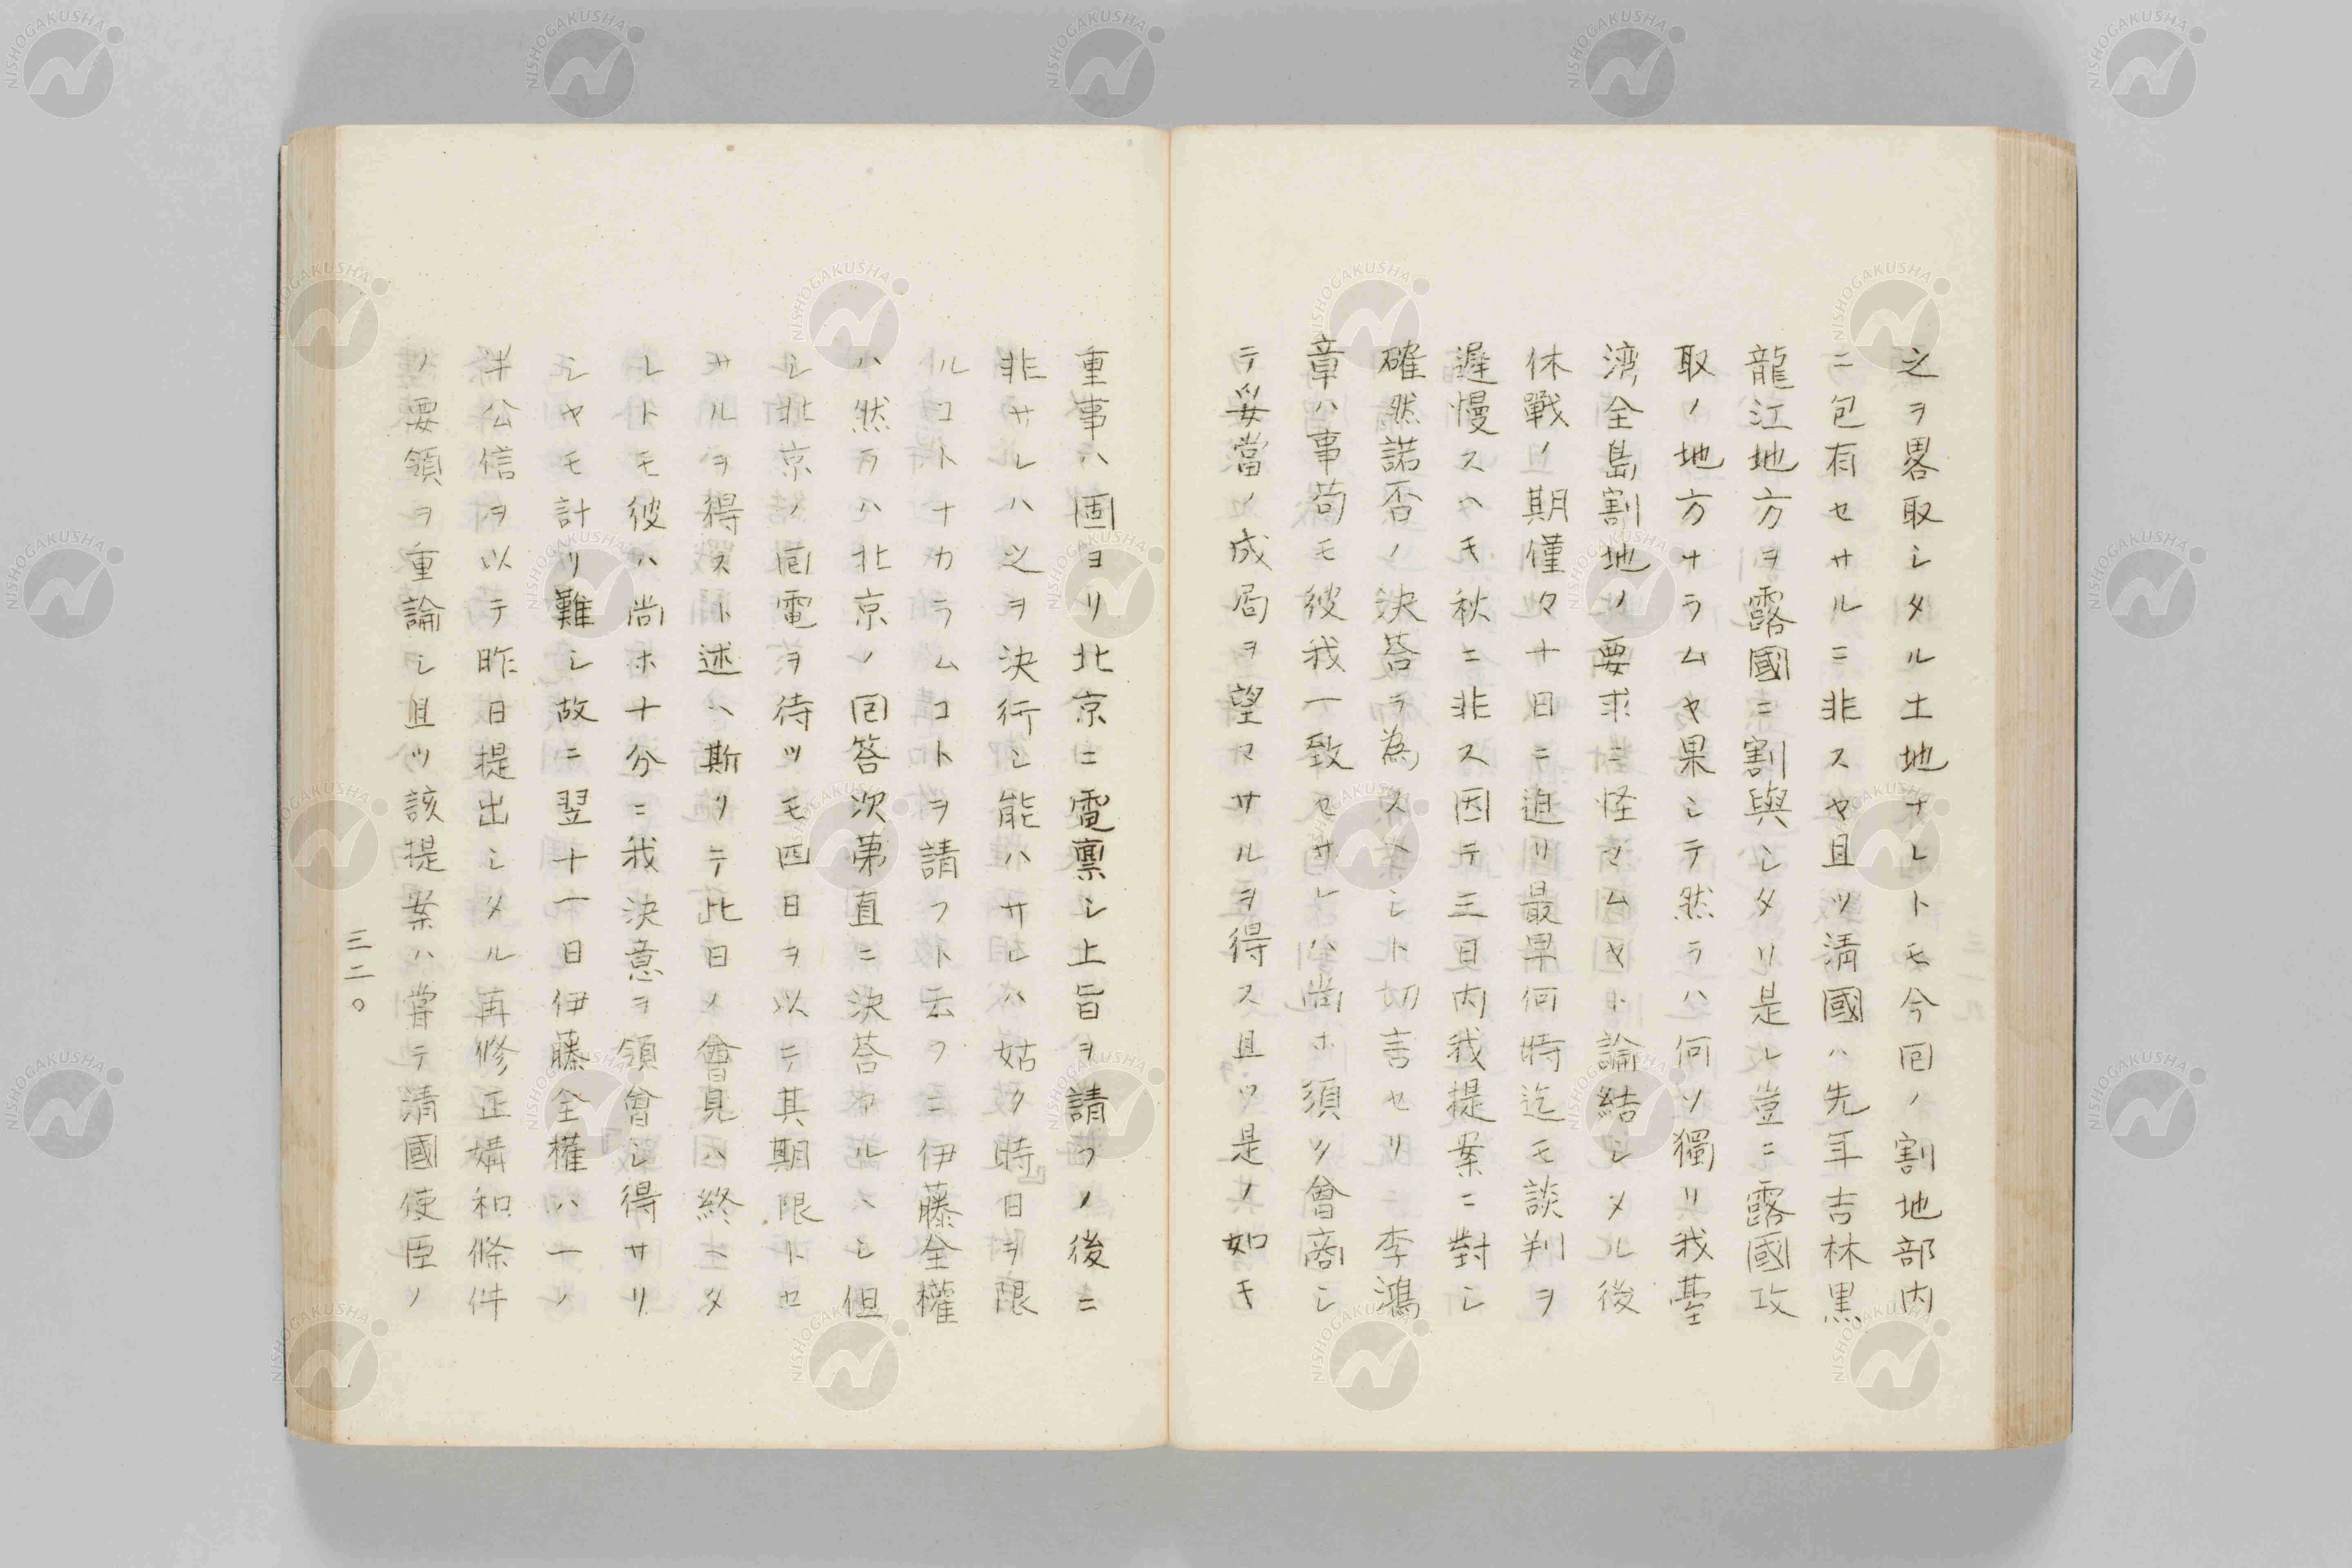 之ヲ畧取シタル土地ナレトモ今回ノ割地部内
ニ包有セサルニ非スヤ且ツ淸國ハ先年吉林黒
龍江地方ヲ露國ニ割與シタリ是レ豈ニ露國攻
取ノ地方ナラムヤ果シテ然ラハ何ソ獨リ我臺
湾全島割地ノ要求ニ怪マムヤト論結シメル後
休戰ノ期僅々十日ニ迫リ最早何時迄モ談判ヲ
遲慢スヘキ秋ニ非ス因テ三日内我提案ニ對シ
確然諾否ノ決荅ヲ為スヘシト切言セリ
ニ李鴻
章ハ事苟モ彼我一致セサレハ尚ホ須ク會商シ
テ妥當ノ成局ヲ望マサルヲ得ス且ツ是ノ如キ
重事ハ固ヨリ北京ニ電禀シ上旨ヲ請フノ後ニ
非サレハ之ヲ決行シ能ハサレハ姑ク時日ヲ限
ルコトナカラムコトヲ請フト云フニ伊藤全權
ハ然ラハ北京ノ回答次第直ニ決荅アルヘシ但
シ北京ノ回電ヲ待ツモ四日ヲ以テ其期限トセ
サルヲ得スト述ヘ斯リテ此日ノ會見ハ終ヘタ
レトモ彼ハ尚ホ十分ニ我決意ヲ領會シ得サリ
シヤモ計リ難シ故ニ翌十一日伊藤全權ハ一ノ
半公信ヲ以テ昨日提出シタル再修正媾和條件
ノ要領ヲ重論シ且ツ該提案ハ嘗テ清國使臣ノ
三二〇
NISHOGAKUSHA